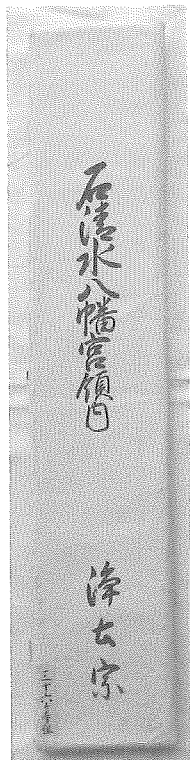 石清水八幡宮領内
浄土宗